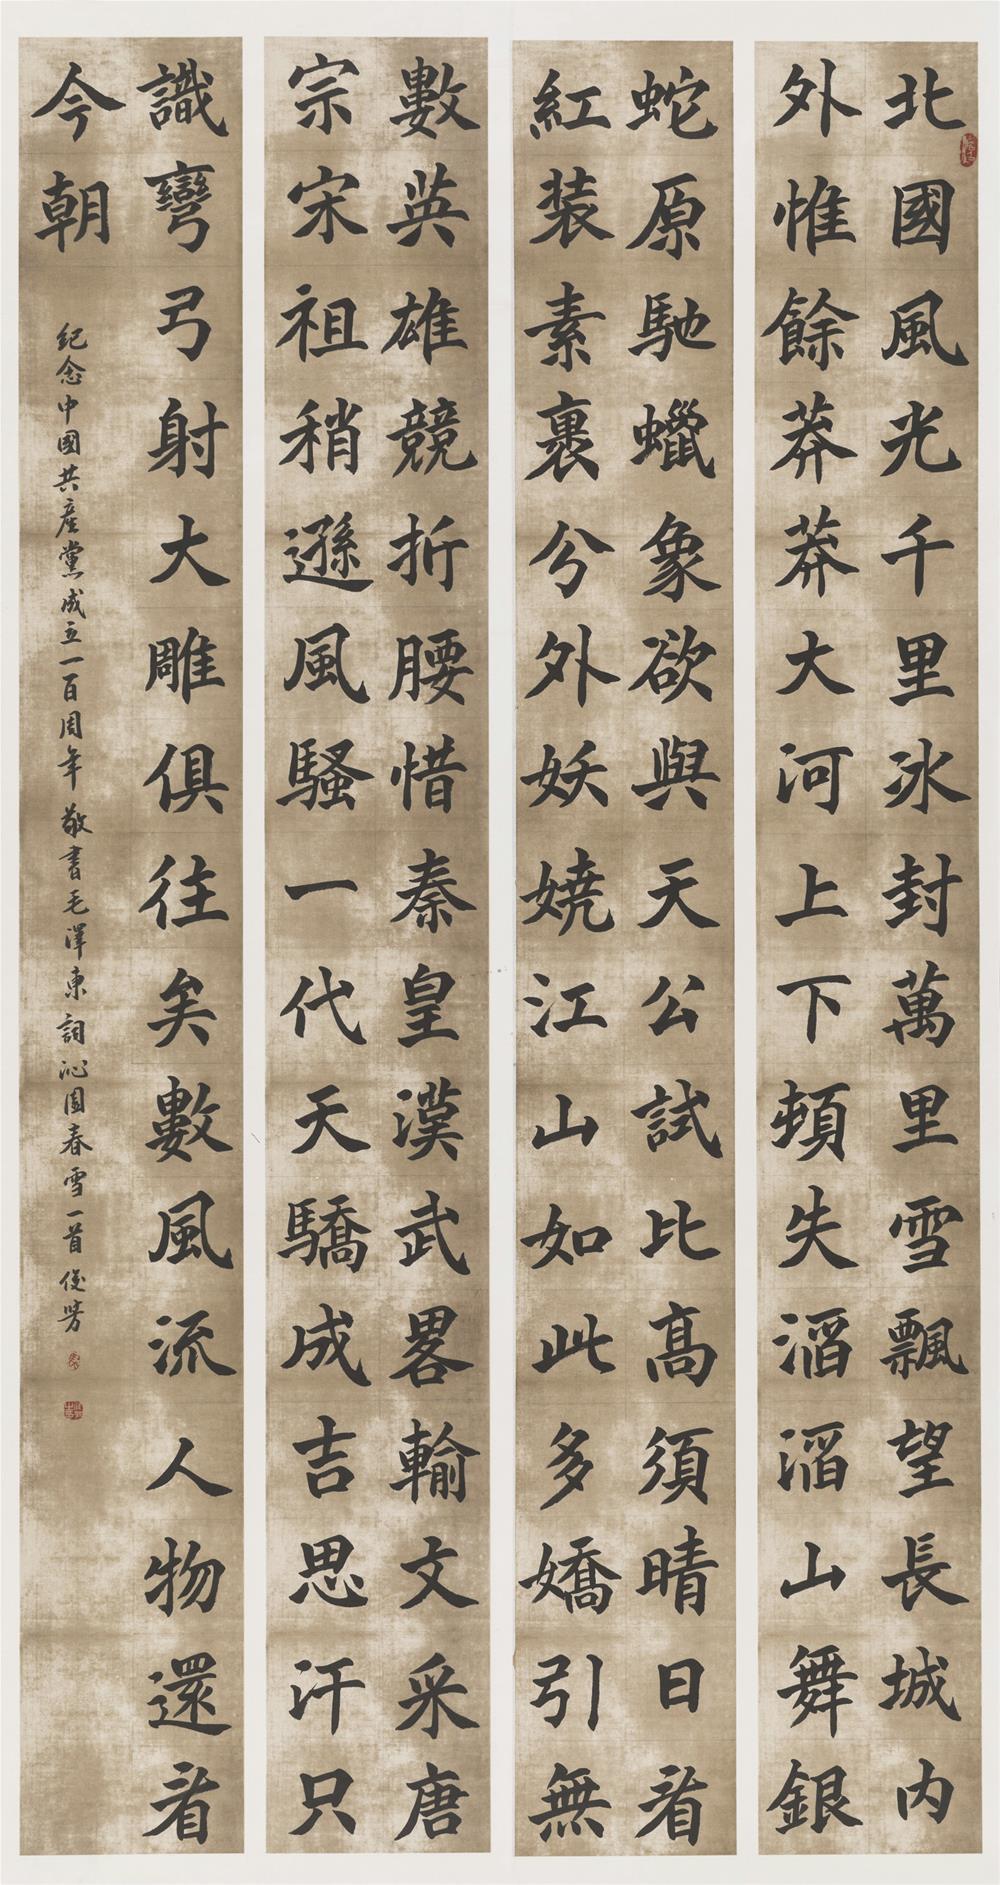 北國風光千里冰封萬里雪飄望長城内
外惟餘莽莽大河上下頓失滔滔山舞銀
蛇原馳蠟象欲與天公試比高須晴日看
紅装素裹兮外妖娆江山如此多嬌引無
數英雄競折腰惜秦皇漢武畧輸文采唐
宗宋祖稍遜風騷一代天驕成吉思汗只
識彎弓射大雕俱往矣數風流人物還看
今朝
纪念中國共産黨成立一百周年敬書毛澤東詞沁園春雪一首俊勞